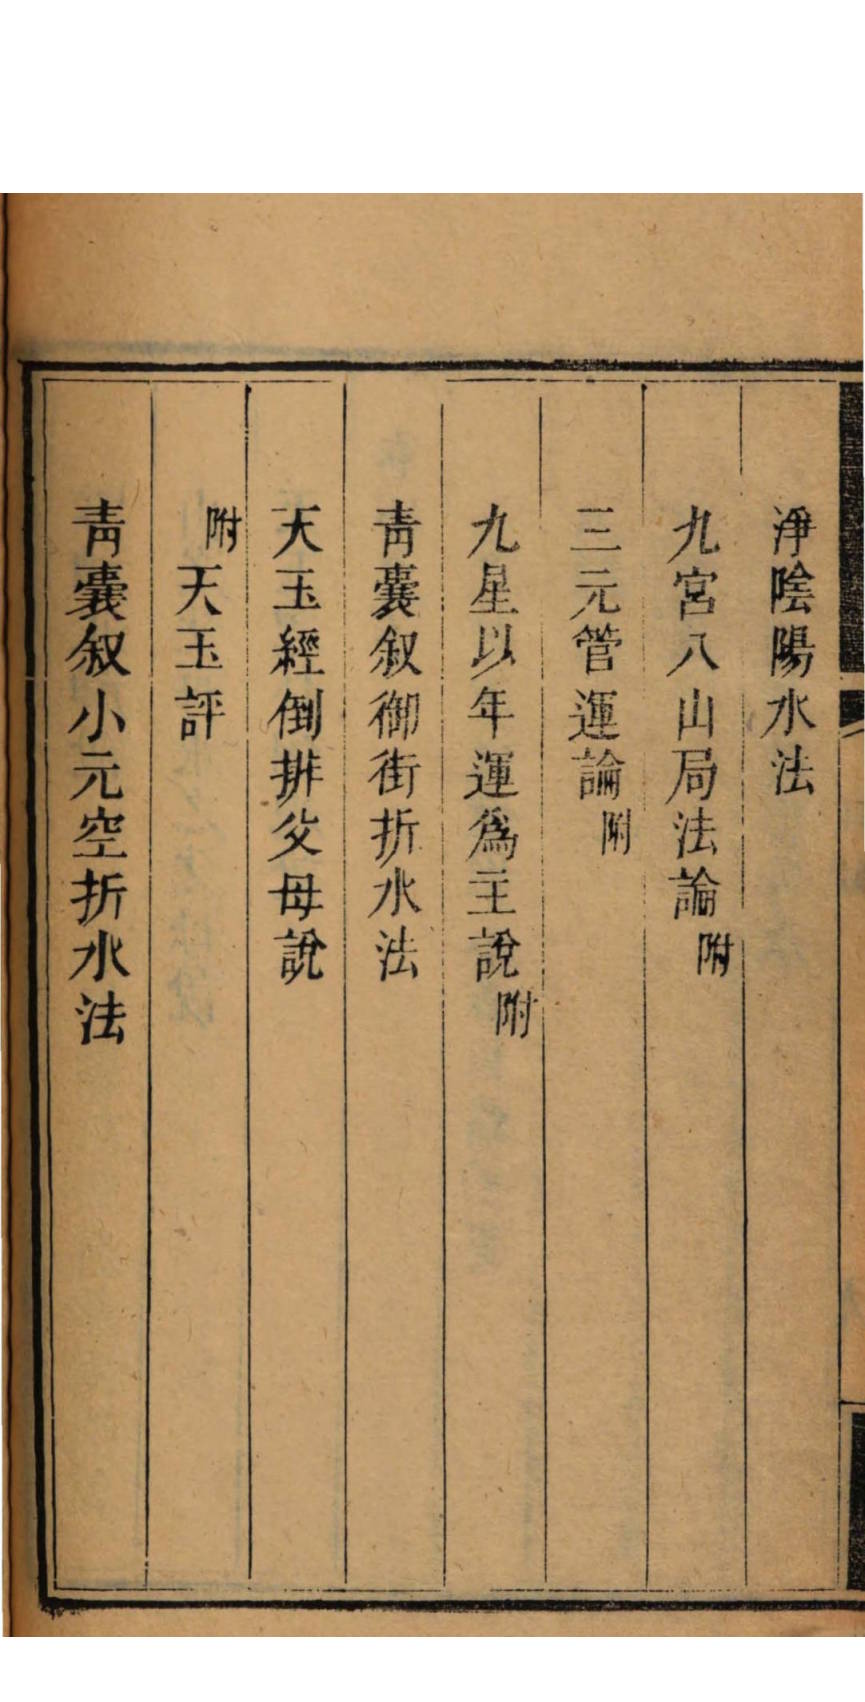 淨陰陽水法
九宮八山局法論附
三元管運論附
九星以年運爲主說附
靑囊叙御街折水法
天玉經倒排父母說
附天玉評
靑囊叙小元空折水法